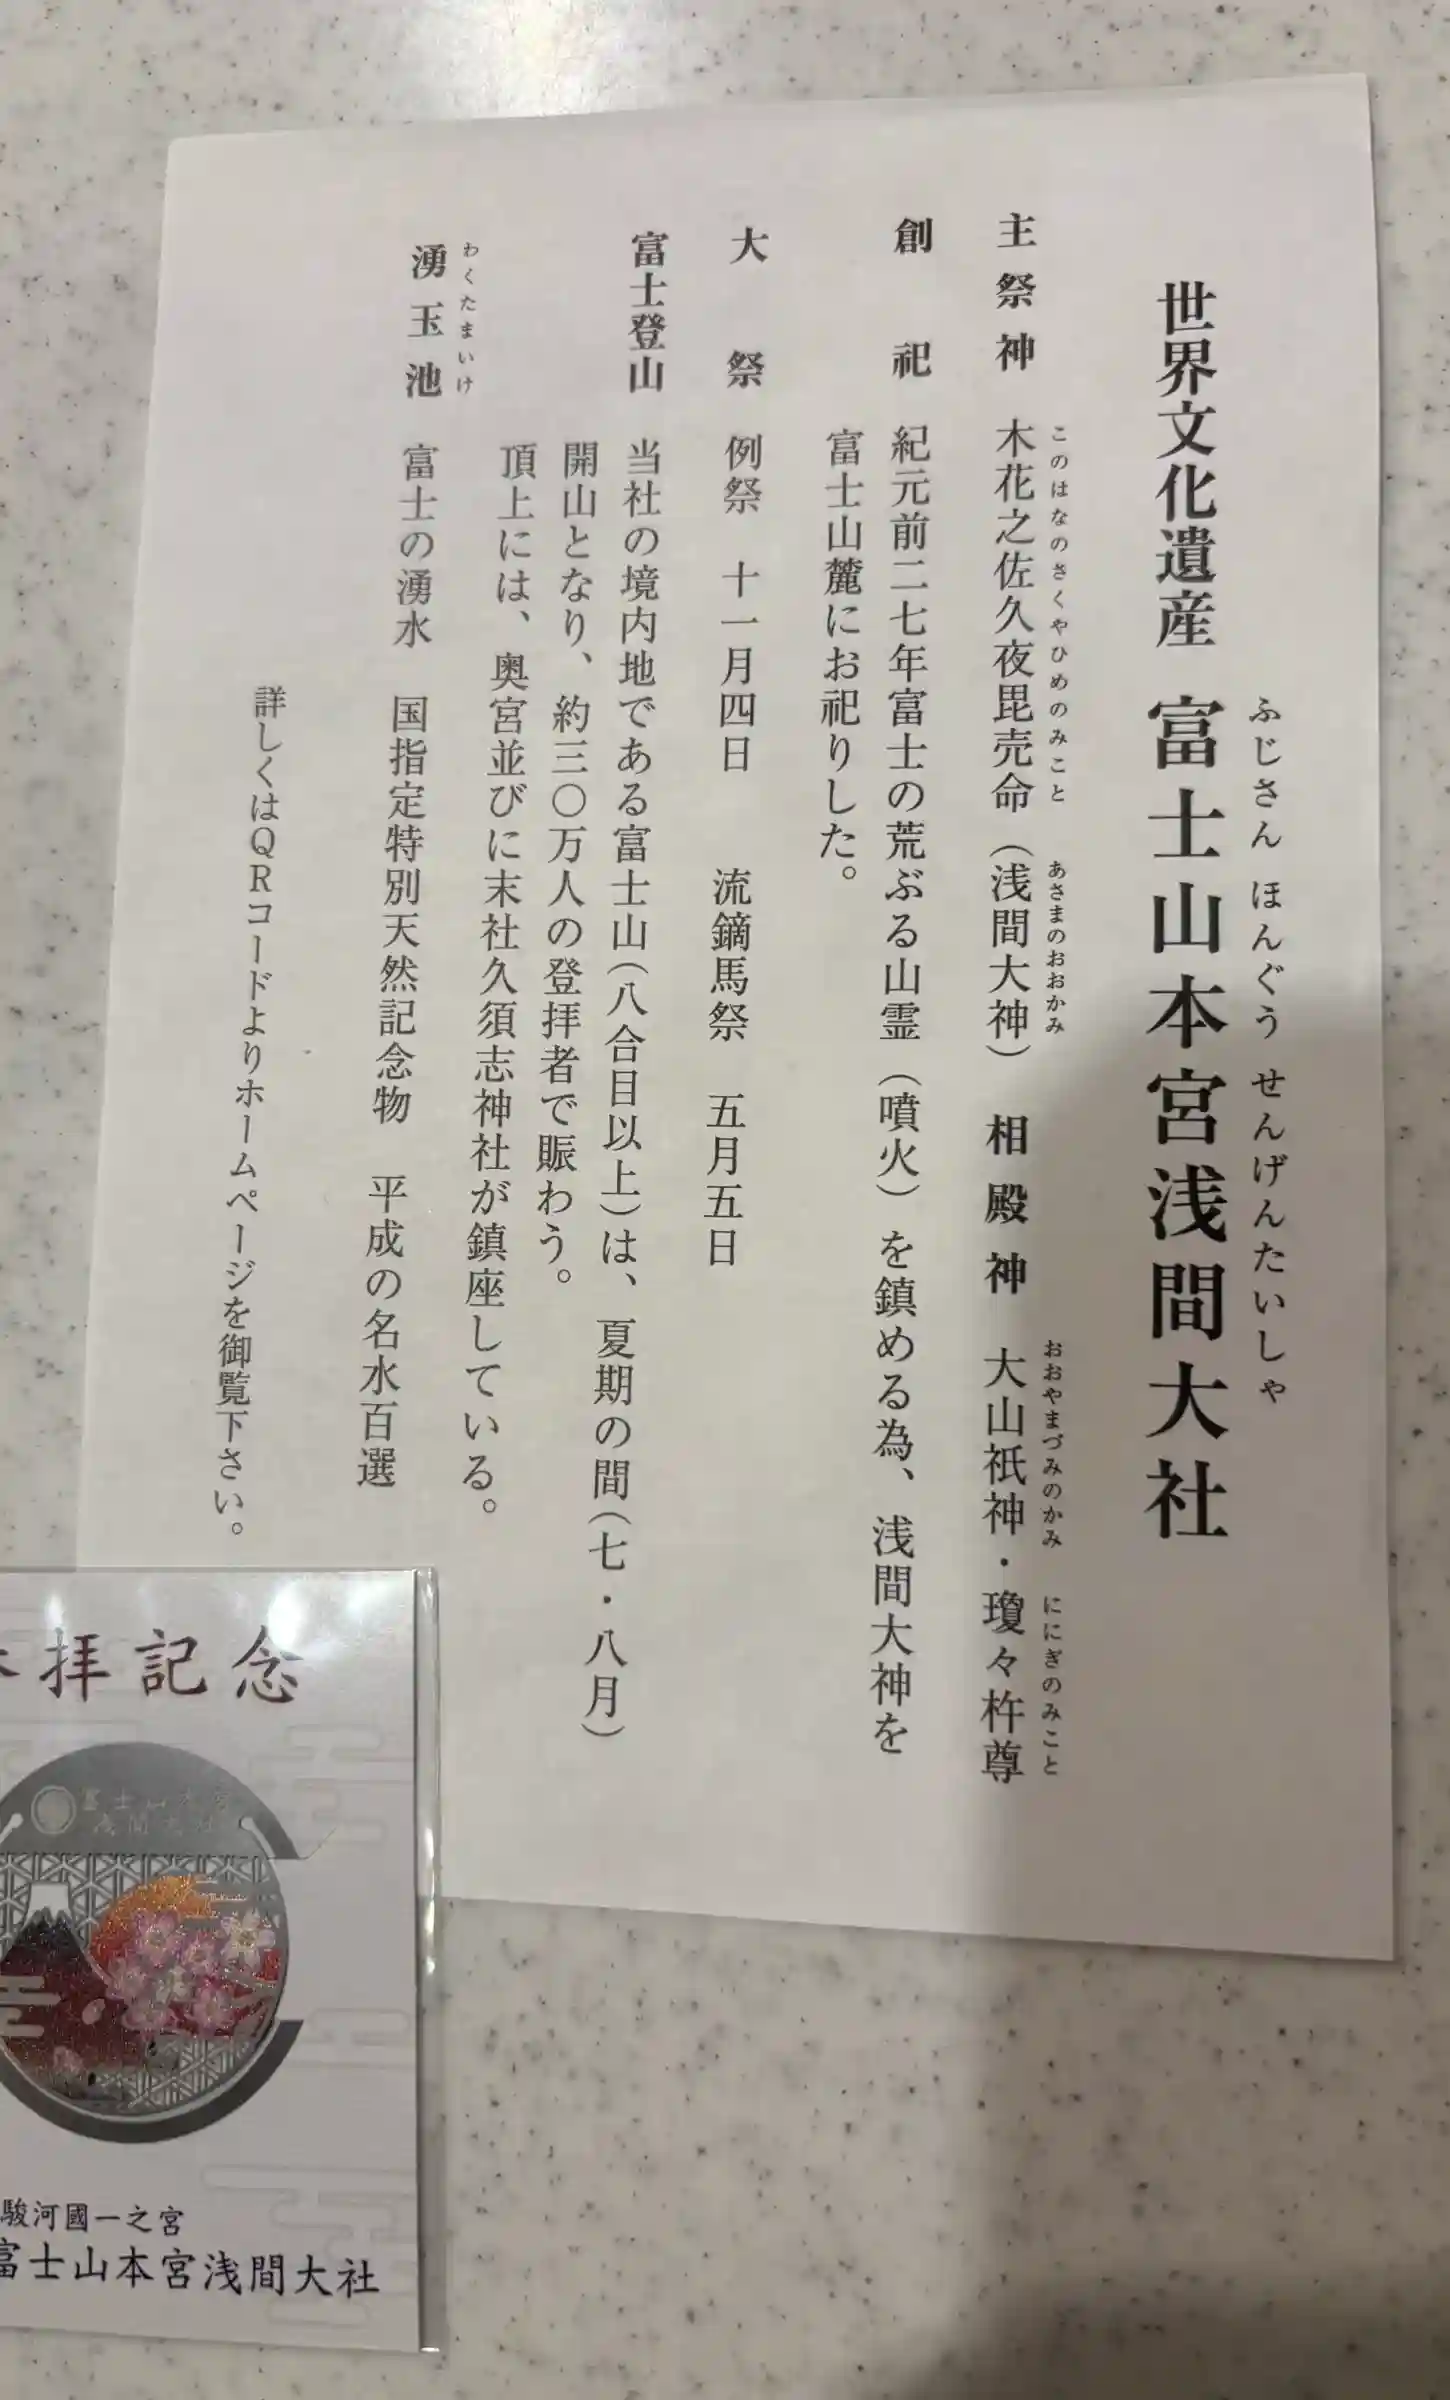 世界文化遺産 富士山本宮浅間大社
ふじさん ほんぐう せんげんたいしゃ
主祭神 木花之佐久夜毘売命(浅間大神) 相殿神 大山祇神・瓊々杵尊
このはなのさくやひめのみこと あさまのおおかみ おおやまづみのかみ ににぎのみこと
創祀 紀元前二七年富士の荒ぶる山霊(噴火)を鎮める為、浅間大神を
富士山麓にお祀りした。
大祭 例祭 十一月四日 流鏑馬祭 五月五日
富士登山 当社の境内地である富士山(八合目以上)は、夏期の間(七・八月)
開山となり、約三〇万人の登拝者で賑わう。
頂上には、奥宮並びに末社久須志神社が鎮座している。
湧玉池 富士の湧水 国指定特別天然記念物 平成の名水百選
わくたまいけ
詳しくはQRコードよりホームページを御覧下さい。
拝記念
富士山本宮
浅間大社
駿河國一之宮
富士山本宮浅間大社